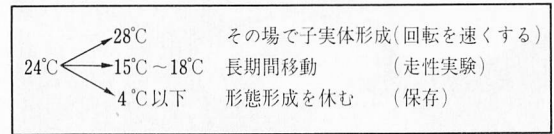 28℃ その場で子実体形成(回転を速くする)
24℃ 15℃～18℃ 長期間移動 (走性実験)
4℃以下 形態形成を休む (保存)